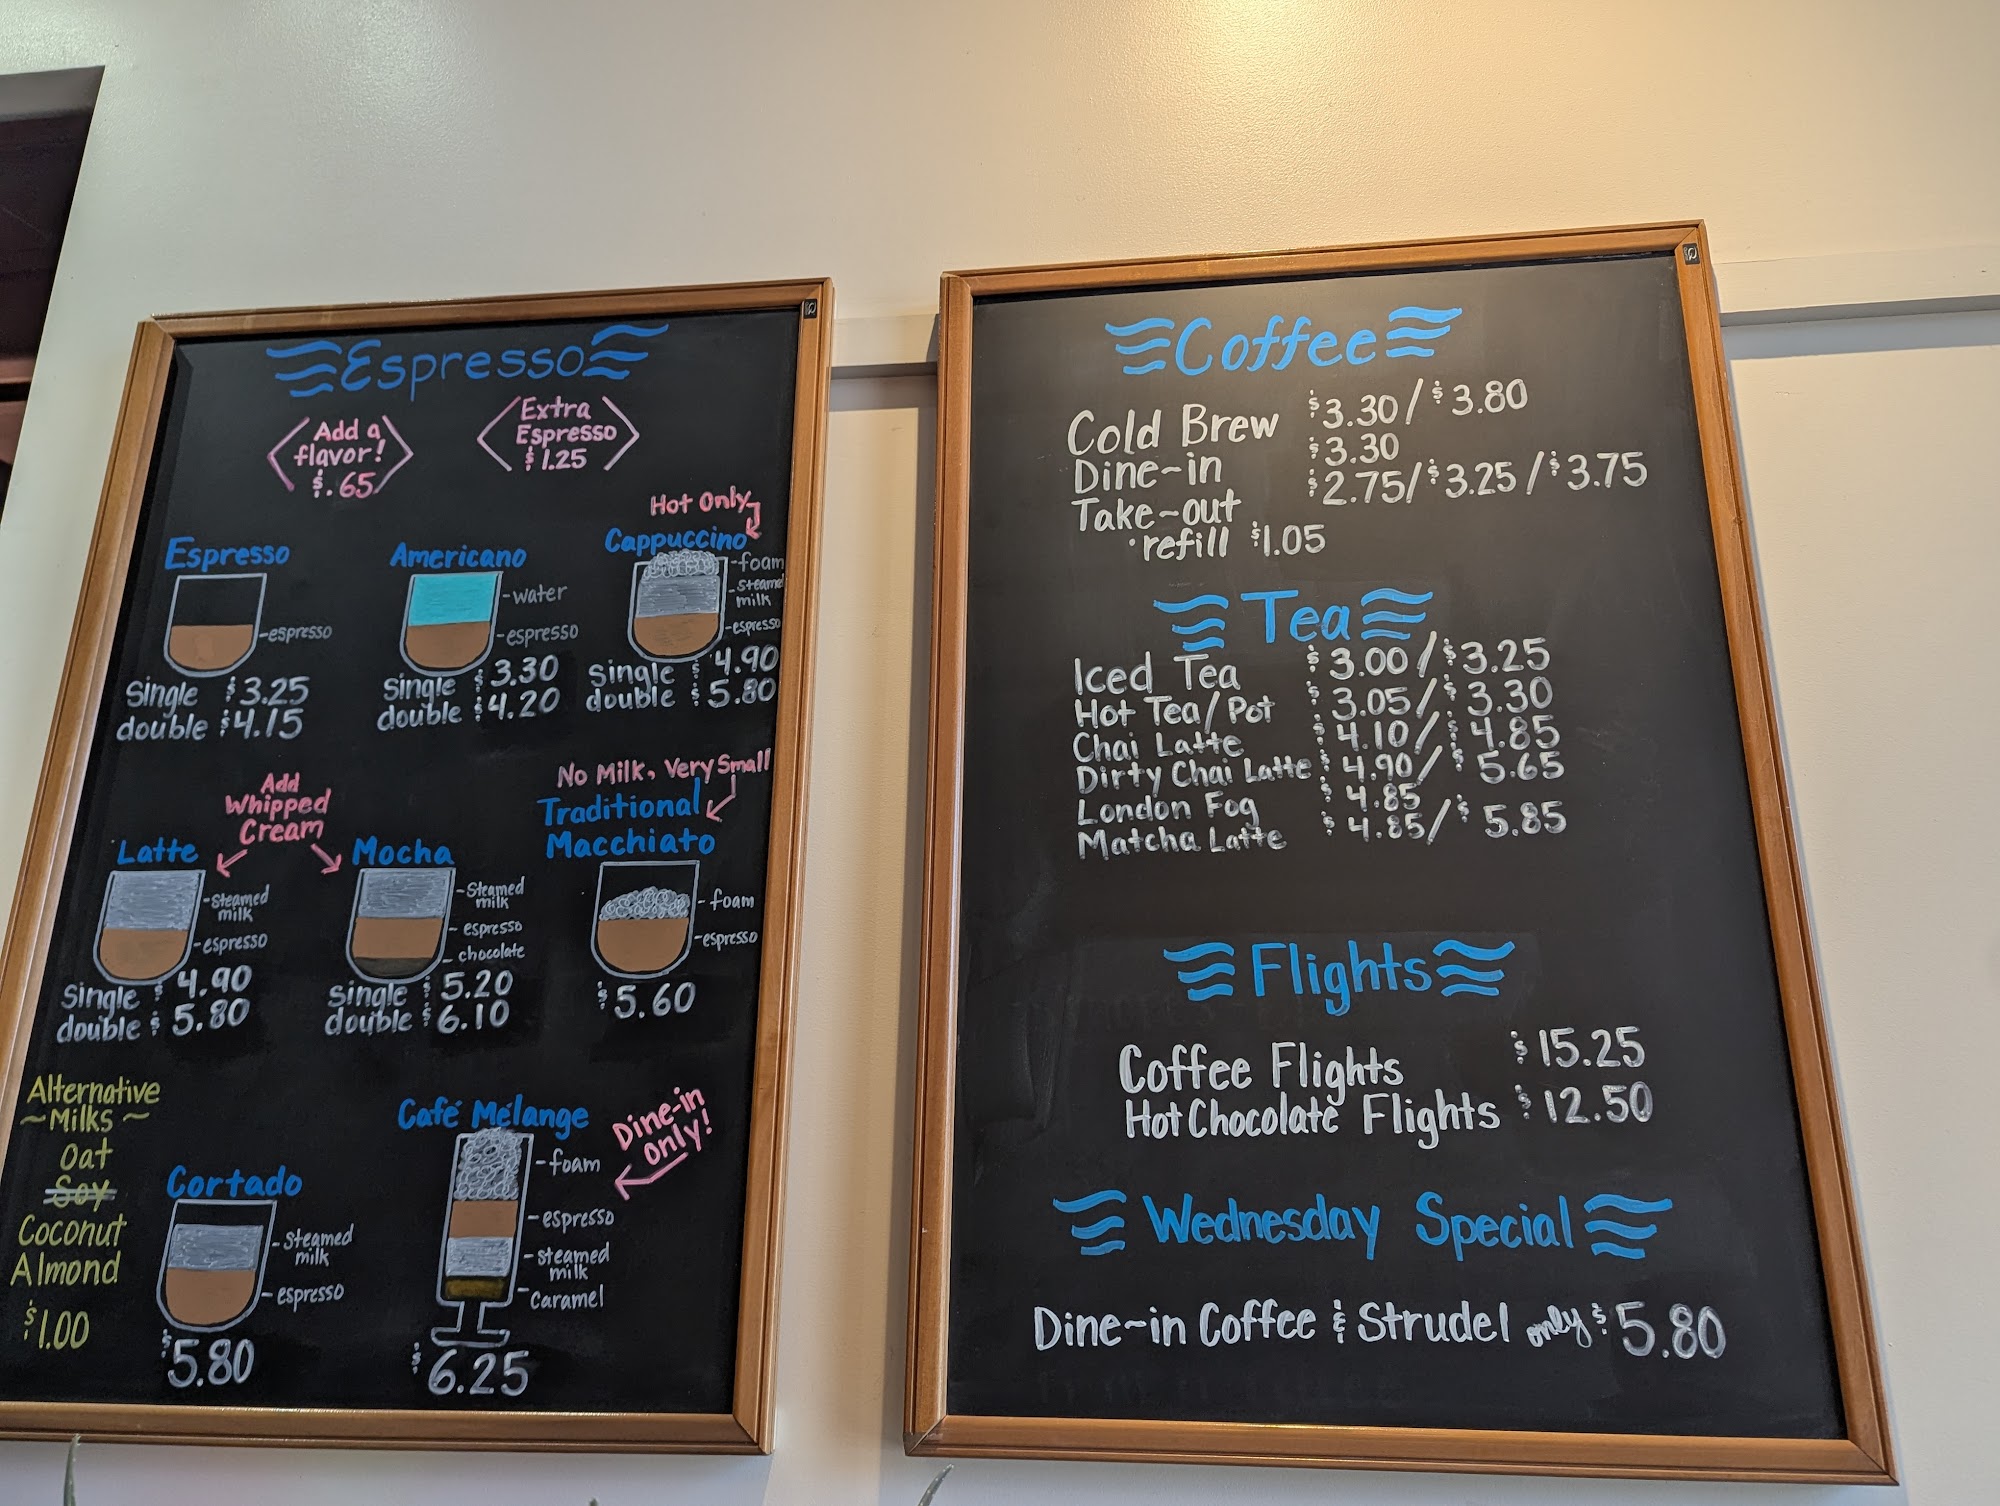 Espresso
Add a
flavor!
$.65
Extra
Espresso
$1.25
Espresso
espresso
Single $3.25
double $4.15
Americano
-water
-espresso
Single $3.30
double $4.20
Hot Only
Cappuccino
-foam
-Steamed
milk
-espresso
Single $4.90
double $5.80
Add
Whipped
Cream
Latte
-Steamed
milk
-espresso
Single $4.90
double $5.80
Mocha
-Steamed
milk
-espresso
chocolate
Single $5.20
double $6.10
No Milk, Very Small
Traditional
Macchiato
-foam
-espresso
$5.60
Alternative
~Milks~
Oat
Soy
Coconut
Almond
$1.00
Cortado
-Steamed
milk
-espresso
$5.80
Café Mélange
Dine-in
only!
-foam
-espresso
-Steamed
milk
-caramel
$6.25
Coffee
Cold Brew $3.30/$3.80
Dine-in $3.30
Take-out $2.75/$3.25/$3.75
·refill $1.05
Tea
Iced Tea $3.00/$3.25
Hot Tea/Pot $3.05/$3.30
Chai Latte $4.10/$4.85
Dirty Chai Latte $4.90/$5.65
London Fog $4.85
Matcha Latte $4.85/$5.85
Flights
Coffee Flights $15.25
Hot Chocolate Flights $12.50
Wednesday Special
Dine-in Coffee & Strudel only $5.80